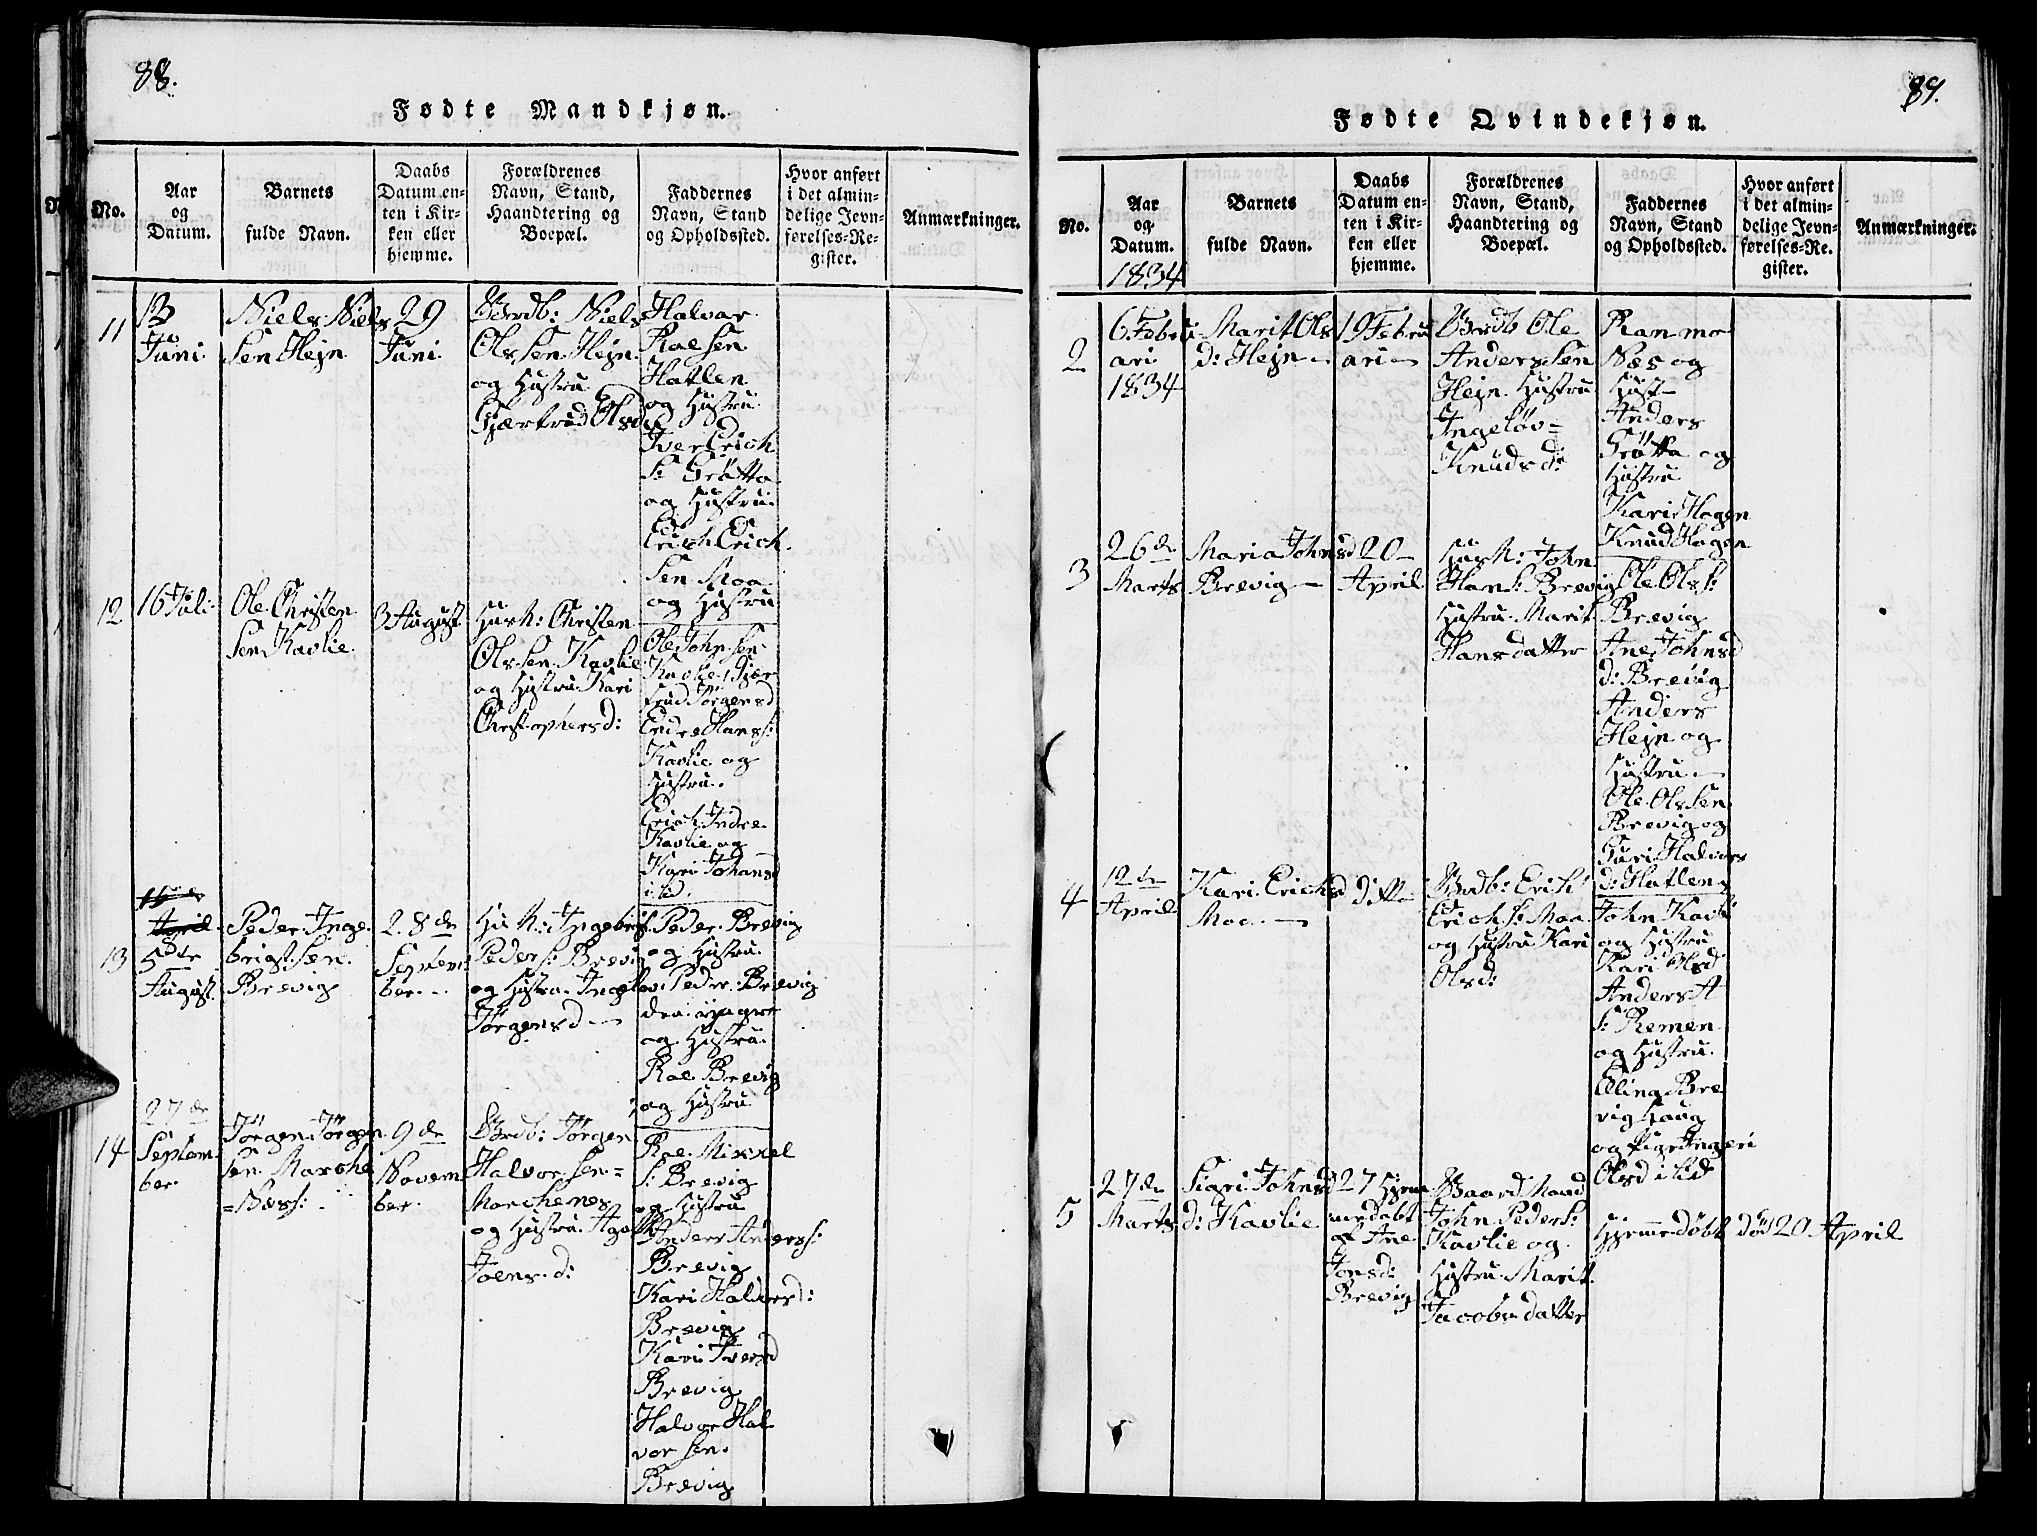 88.
Fødte Mandkjøn.
No.
Aar
og
Datum.
Barnets
fulde Navn.
Daabs
Datum en-
ten i Kir-
ken eller
hjemme.
Forældrenes
Navn, Stand,
Haandtering og
Boepæl.
Faddernes
Navn, Stand
og Opholdssted.
Hvor anført
i det almin-
delige Jevn-
førelses-Re-
gister.
Anmærkninger.
11
13
Juni
Niels Niels
Sen Hejn
29
Juni
Gbrdb: Niels
Ols Sen Hejn
og Hustru
Gjærtrud Olsd
Halvar
Roe Sen
Hatlen
og Hustru
Iver Erich
S: Grøtta
og Hustru
Erich Erich
Sen Moa
og Hustru
12
16 Juli
Ole Christen
Sen Kavlie
3 August
Husm: Christen
Ols Sen Kavlie
og Hustru Kari
Christophersd:
Ole John Sen
Kavlie, Gjær
trud Jørgensd
Endre Hans s:
Kavlie og
Hustru.
Erich Indre
Kavlie og
Kari Johansd
i Lid.
13
April
5 de
August
Peder Inge
brigt Sen
Brevig
28 de
Septem
ber
Hu M: Ingebrigt
Peders: Brevig
og Hustru Ingeløv
Jørgensd
Peder Brevig
og Hustru
Peder Brevig
den yngre
og Hustru
Roe Brevig
og Hustru
14
27 de
Septem
ber
Jørgen Jørgen
Sen Marche
Næss:
9 de
Novem
ber.
Gbrdb: Jørgen
Halvor Sen
Marchenes
og Hustru
Joens d:
Roe Mikkel
S: Brevig
og Hustru
Anders Anderss:
Brevig
Kari Halvorsd:
Brevig
Kari Iversd
Brevig
Halvor Hal
vor Sen.
Brevig
89.
Fødte Qvindekjøn.
No.
Aar
og
Datum.
1834
Barnets
fulde Navn.
Daabs
Datum en-
ten i Kir-
ken eller
hjemme.
Forældrenes
Navn, Stand,
Haandtering og
Boepæl.
Faddernes
Navn, Stand
og Opholdssted.
Hvor anført
i det almin-
delige Jevn-
førelses-Re-
gister.
Anmærkninger.
2
6 Febru
ari
1834
Marit Ols
d: Hejn
19 Febru
ari
Gbrdb Ole
Anders Sen
Hejn Hustru
Ingeløv
Knuds d:
Næs og
Hust
Anders
Grøtta og
Hustru
Kari Hagen
Knud Hagen
3
26 de
Marts
Maria Johnsd
Brevig
20
April
Husm: John
Hans s: Brevig
Hustru Marit
Hansdatter
Ole Ols s:
Brevig
Ane Johnsd
d: Brevig
Anders
Hejn og
Hustru
Ole Ols Sen
Brevig og
Guri Halvors
d: Hatlen
4
12 de
April
Kari Erichsd
Moe
ditto
Gbrdb: Erich
Erich s: Moa
og Hustru Kari
Olsd:
John Kavli
og Hustru
Kari Olsd
Anders A
s: Remen
og Hustru.
Elling Bre
vig Haug
og Pige Ingeri
Olsd i Lid
5
27 de
Marts
Sigri Johnsd
d: Kavlie
27 Hjem
medøbt
af Ane
Jonsd:
Brevig
Gaard Mand
John Peders:
Kavlie og
Hustru Marit
Jacobsdatter
Hjemmedøbt død 20 April